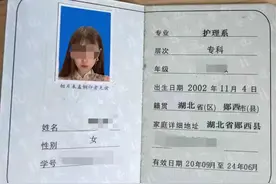 相片未盖钢印者无效
姓名
性别 女
学号
专业 护理系
层次 专科
年级
出生日期 2002 年 11 月 4 日
籍贯 湖北省(区) 郧西市(县)
家庭详细地址 湖北省郧西县
有效日期 20年09月 至 24年06月